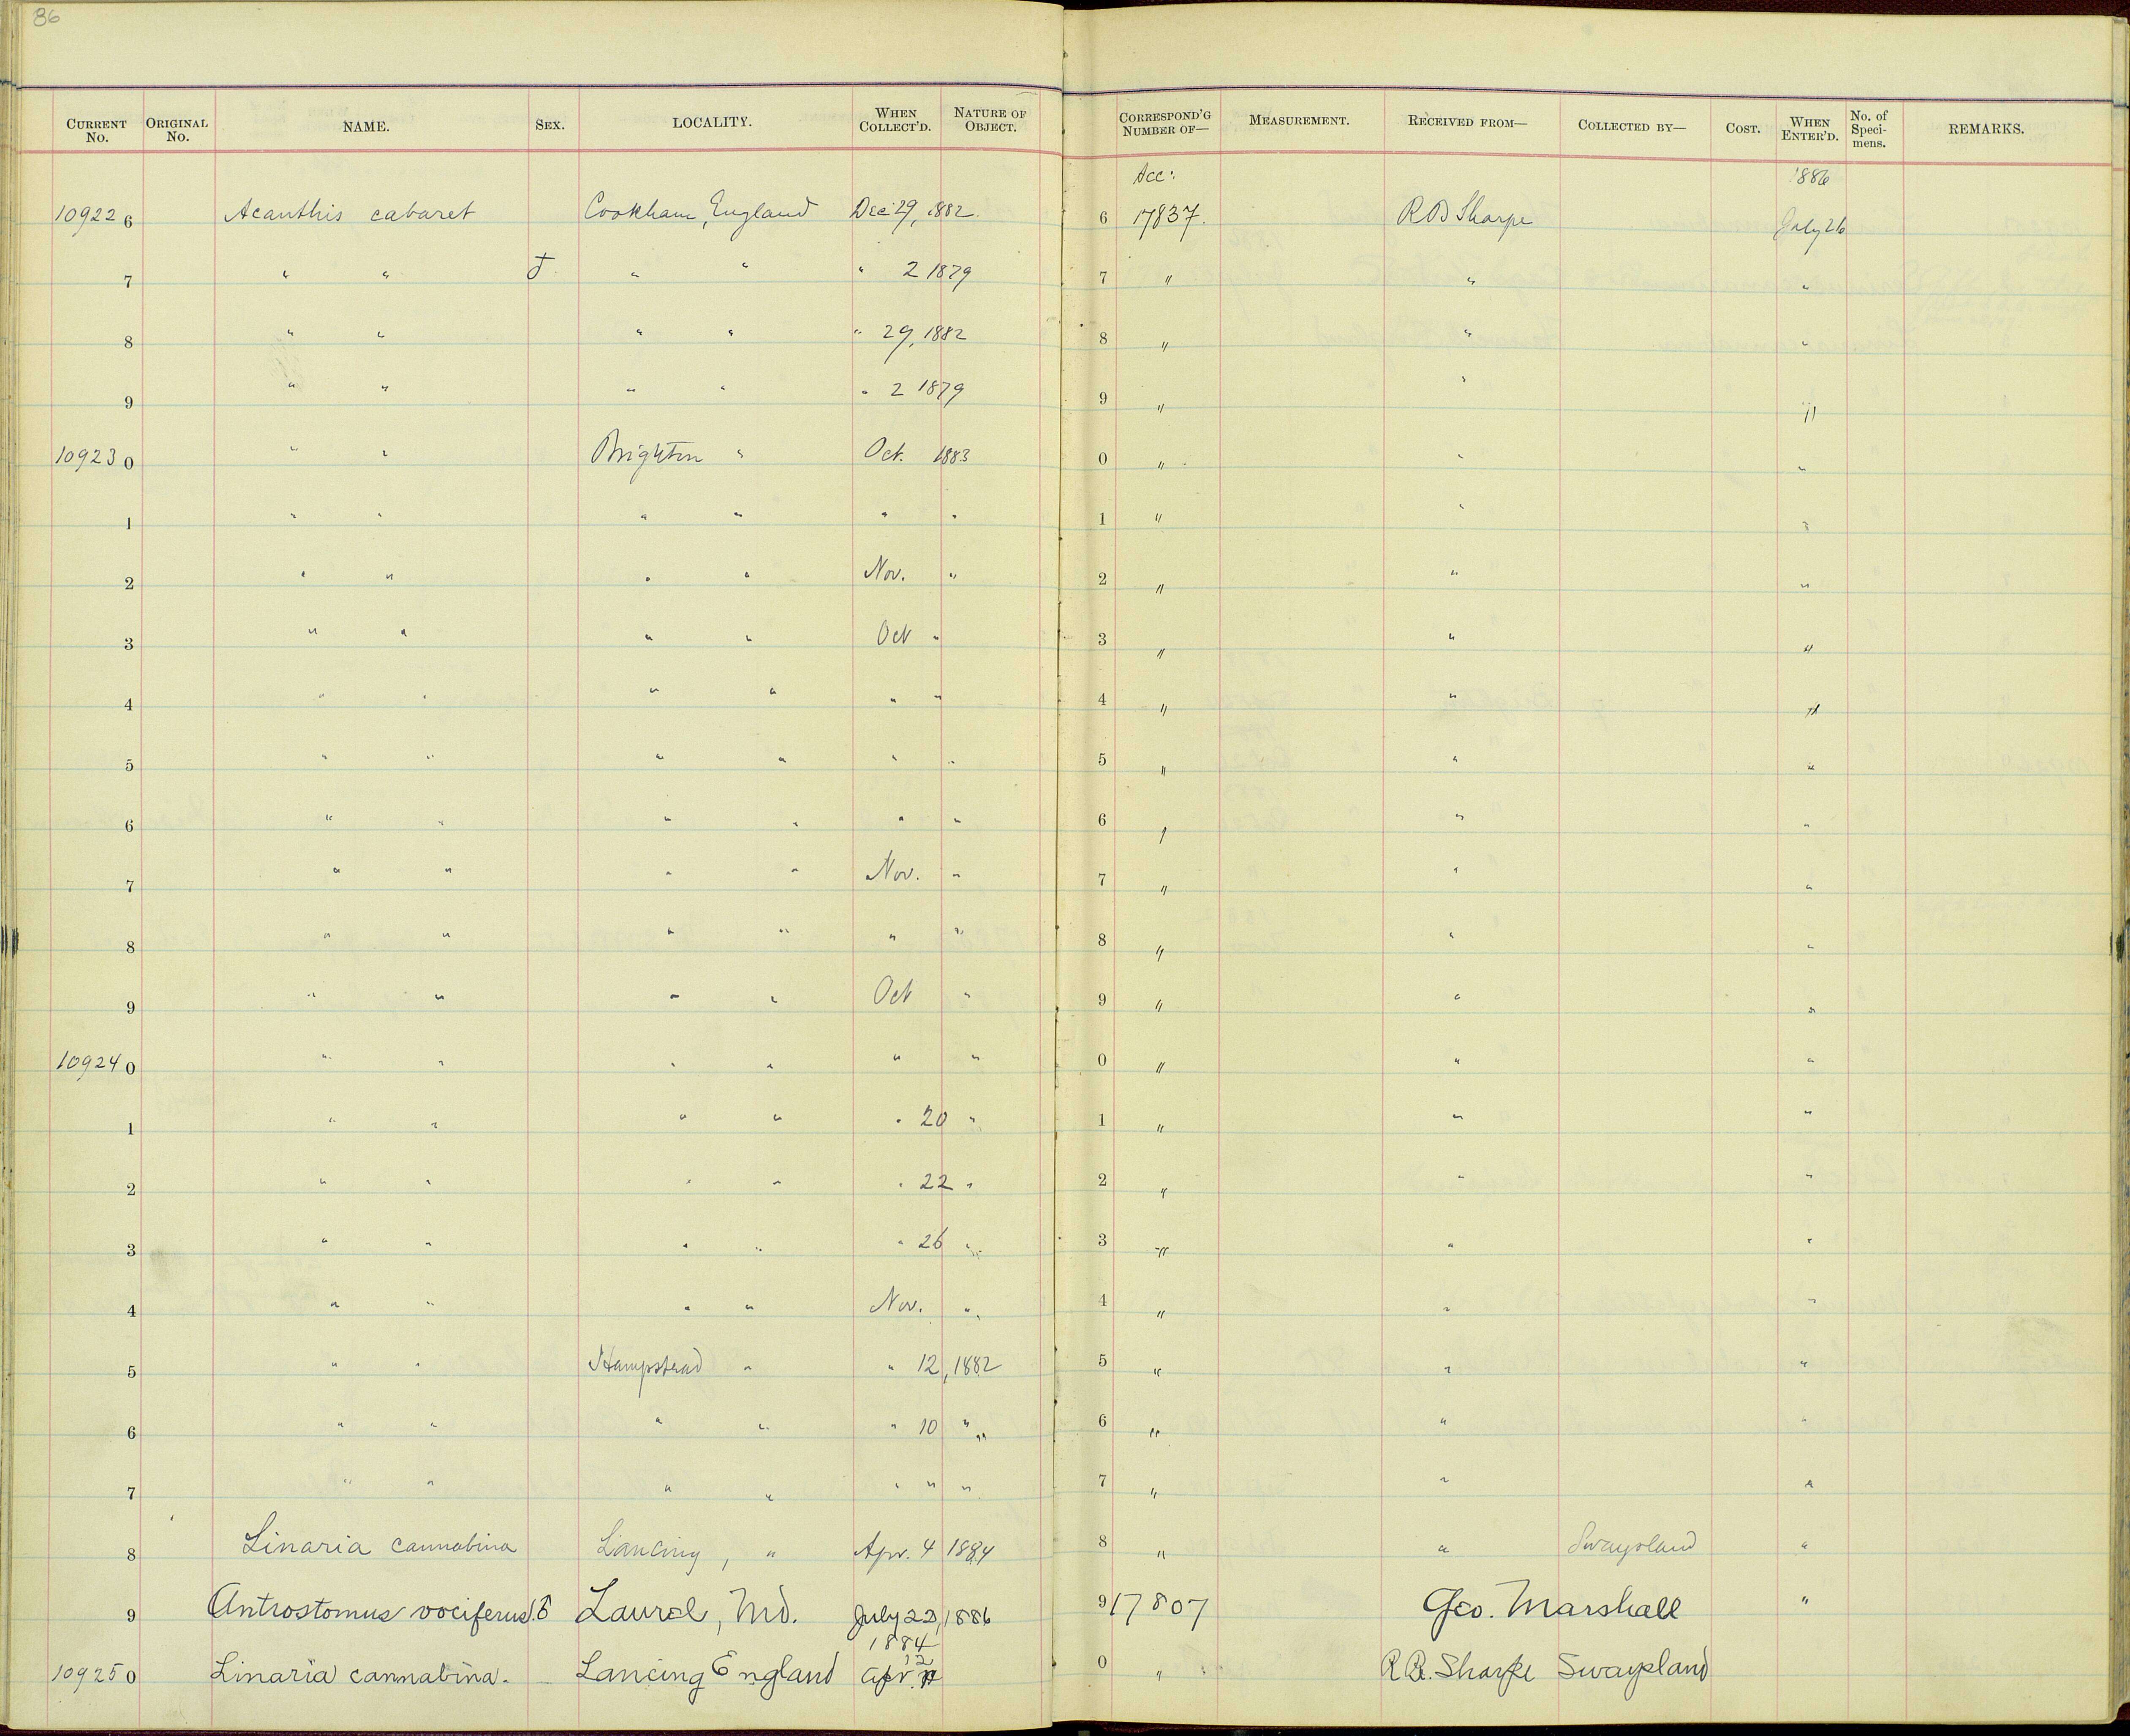 86
CURRENT No. ORIGINAL No. NAME. SEX. LOCALITY. WHEN COLLECT'D. NATURE OF OBJECT. CORRESPOND'G NUMBER OF— MEASUREMENT. RECEIVED FROM— COLLECTED BY— COST. WHEN ENTER'D. No. of Speci-mens. REMARKS.
Acc: 1886
10922 6 Acanthis cabaret Cookham, England Dec 29, 1882. 6 17837. R B Sharpe July 26
7 " " " " " 2 1879 7 " " "
8 " " " " " 29, 1882 8 " " "
9 " " " " " 2 1879 9 " " "
10923 0 " " Brighton " Oct. 1883 0 " " "
1 " " " " " " 1 " " "
2 " " " " Nov. " 2 " " "
3 " " " " Oct " 3 " " "
4 " " " " " " 4 " " "
5 " " " " " " 5 " " "
6 " " " " " " 6 " " "
7 " " " " Nov. " 7 " " "
8 " " " " " " 8 " " "
9 " " " " Oct " 9 " " "
10924 0 " " " " " " 0 " " "
1 " " " " " 20 " 1 " " "
2 " " " " " 22 " 2 " " "
3 " " " " " 26 " 3 " " "
4 " " " " Nov. " 4 " " "
5 " " Hampstead " " 12, 1882 5 " " "
6 " " " " " 10 " 6 " " "
7 " " " " " " " 7 " " "
8 Linaria cannabina Lancing, " Apr. 4 1884 8 " " Swaysland "
9 Antrostomus vociferus. Laurel, Md. July 22, 1886 9 17807 Geo. Marshall "
1884
10925 0 Linaria cannabina. Lancing England Apr. 12 0 " " R B. Sharpe Swaysland